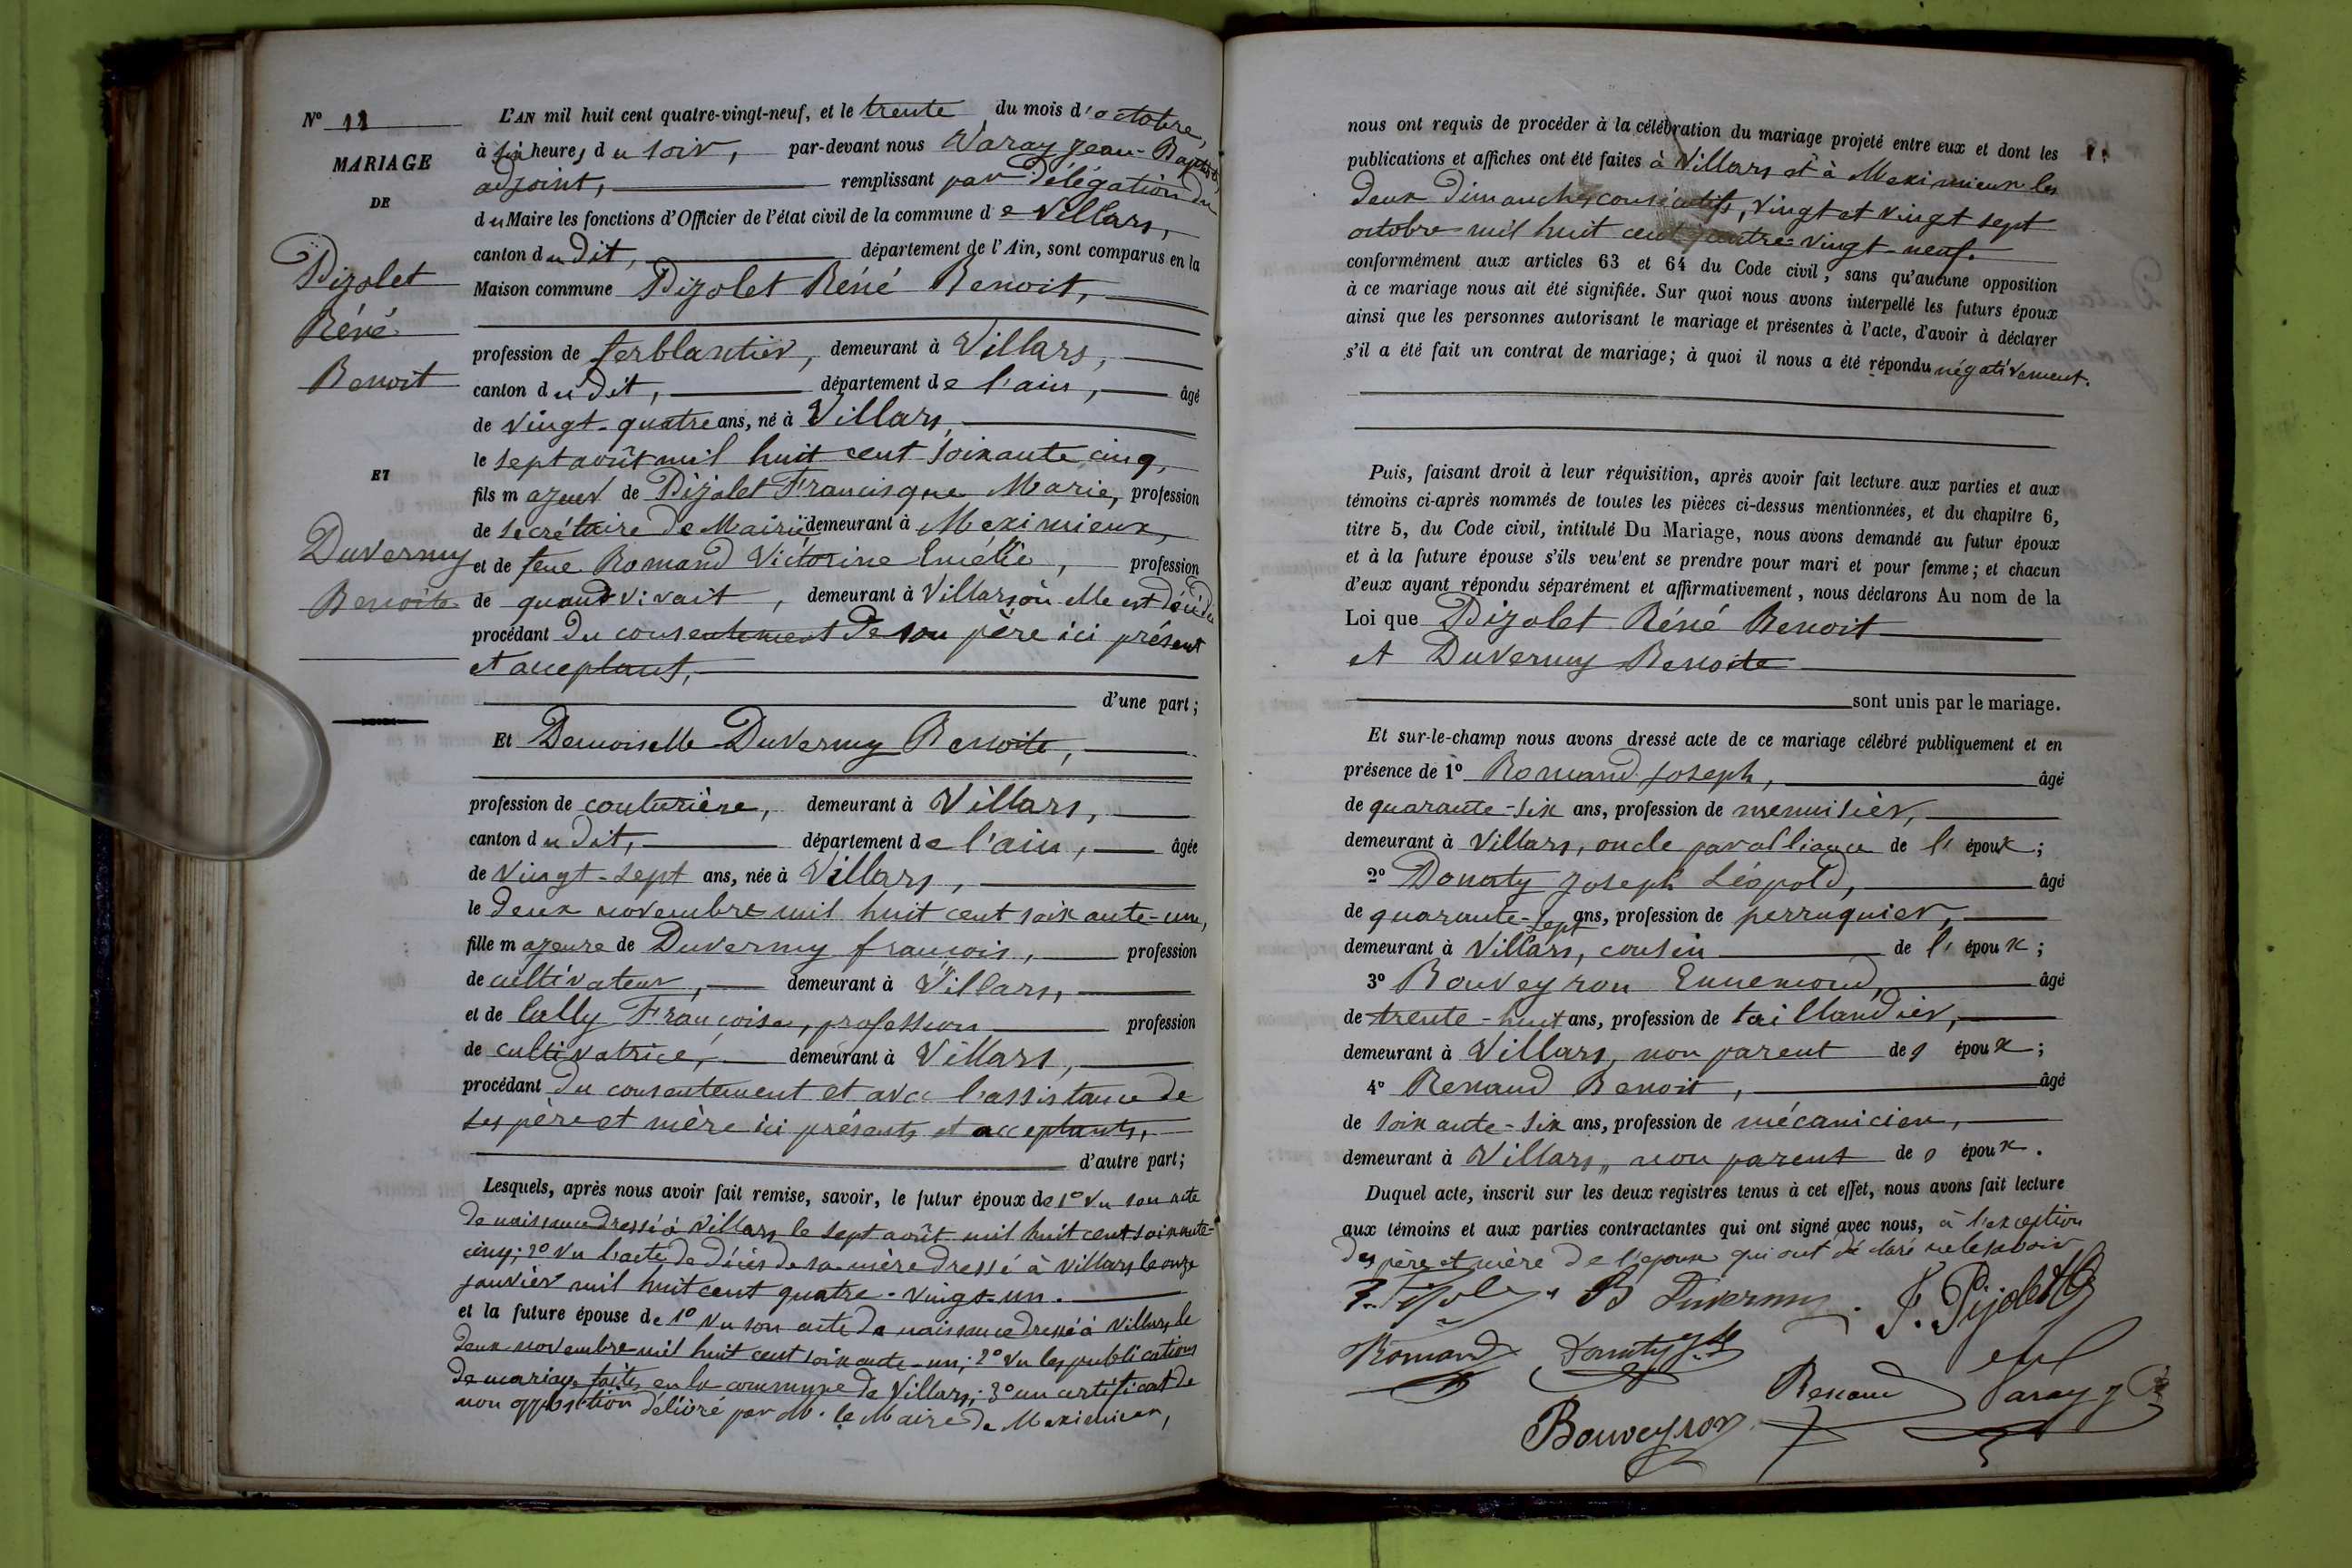 N° 11
MARIAGE
DE
Pijolet
Réné
Benoit
ET
Duverny
Benoite
L'AN mil huit cent quatre-vingt-neuf, et le trente du mois d'octobre,
à six heures du soir, par-devant nous Varay Jean-Baptiste,
adjoint, remplissant par délégation du
du Maire les fonctions d'Officier de l'état civil de la commune de Villars,
canton du dit, département de l'Ain, sont comparus en la
Maison commune Pijolet Réné Benoit,
profession de ferblantier, demeurant à Villars,
canton du dit, département de l'ain, âgé
de vingt-quatre ans, né à Villars,
le sept août mil huit cent soixante cinq,
fils majeur de Pijolet Francisque Marie, profession
de secrétaire de Mairie demeurant à Meximieux,
et de feue Romand Victorine Emélie, profession
de quand vivait, demeurant à Villars où elle est décédée
procédant du consentement de son père ici présent
et acceptant,
d'une part;
Et Demoiselle Duverny Benoite,
profession de couturière, demeurant à Villars,
canton du dit, département de l'ain, âgée
de vingt-sept ans, née à Villars,
le deux novembre mil huit cent soixante-un,
fille majeure de Duverny françois, profession
de cultivateur, demeurant à Villars,
et de Cully Françoise, profession profession
de cultivatrice, demeurant à Villars,
procédant du consentement et avec l'assistance de
ses père et mère ici présents et acceptants,
d'autre part;
Lesquels, après nous avoir fait remise, savoir, le futur époux de 1° Vu son acte
de naissance dressé à Villars le sept août mil huit cent soixante-
cinq; 2° Vu l'acte de décès de sa mère dressé à Villars le onze
janvier mil huit cent quatre-vingt-un.
et la future épouse de 1° Vu son acte de naissance dressé à Villars le
deux novembre mil huit cent soixante-un; 2° Vu les publications
de mariage faites en la commune de Villars; 3° un certificat de
non opposition délivré par M. le Maire de Meximieux,
nous ont requis de procéder à la célébration du mariage projeté entre eux et dont les
publications et affiches ont été faites à Villars et à Meximieux les
deux dimanches consécutifs, vingt et vingt sept
octobre mil huit cent quatre-vingt-neuf.
conformément aux articles 63 et 64 du Code civil, sans qu'aucune opposition
à ce mariage nous ait été signifiée. Sur quoi nous avons interpellé les futurs époux
ainsi que les personnes autorisant le mariage et présentes à l'acte, d'avoir à déclarer
s'il a été fait un contrat de mariage; à quoi il nous a été répondu négativement.
Puis, faisant droit à leur réquisition, après avoir fait lecture aux parties et aux
témoins ci-après nommés de toutes les pièces ci-dessus mentionnées, et du chapitre 6,
titre 5, du Code civil, intitulé Du Mariage, nous avons demandé au futur époux
et à la future épouse s'ils veu'ent se prendre pour mari et pour femme; et chacun
d'eux ayant répondu séparément et affirmativement, nous déclarons Au nom de la
Loi que Pijolet Réné Benoit
et Duverny Benoite
sont unis par le mariage.
Et sur-le-champ nous avons dressé acte de ce mariage célébré publiquement et en
présence de 1° Romand Joseph, âgé
de quarante-six ans, profession de menuisier,
demeurant à Villars, oncle par alliance de l'époux;
2° Donaty Joseph Léopold, âgé
de quarante-sept ans, profession de perruquier,
demeurant à Villars, cousin de l'époux;
3° Bouveyron Ennemond, âgé
de trente-huit ans, profession de taillandier,
demeurant à Villars, non parent des époux;
4° Renaud Benoit, âgé
de soixante-six ans, profession de mécanicien,
demeurant à Villars, non parent des époux.
Duquel acte, inscrit sur les deux registres tenus à cet effet, nous avons fait lecture
aux témoins et aux parties contractantes qui ont signé avec nous, à l'exception
des père et mère de l'épouse qui ont déclaré ne le savoir
B Duverny F. Pijolet
Romand Donaty
Renaud Varay J B
Bouveyron